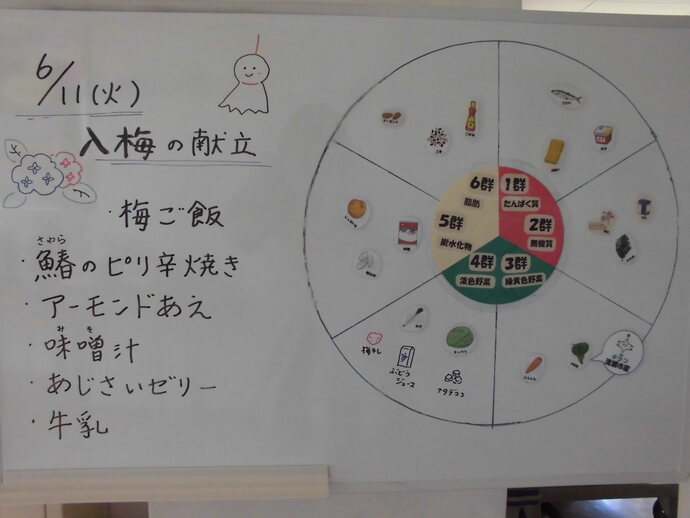 6/11(火)
入梅の献立
・梅ご飯
さわら
・鰆のピリ辛焼き
・アーモンドあえ
みそ
・味噌汁
・あじさいゼリー
・牛乳
6群
脂肪
1群
たんぱく質
5群
炭水化物
2群
無機質
4群
淡色野菜
3群
緑黄色野菜
キャベツ
にんじん
梅干し
ぶどう
ジュース
ナタデココ